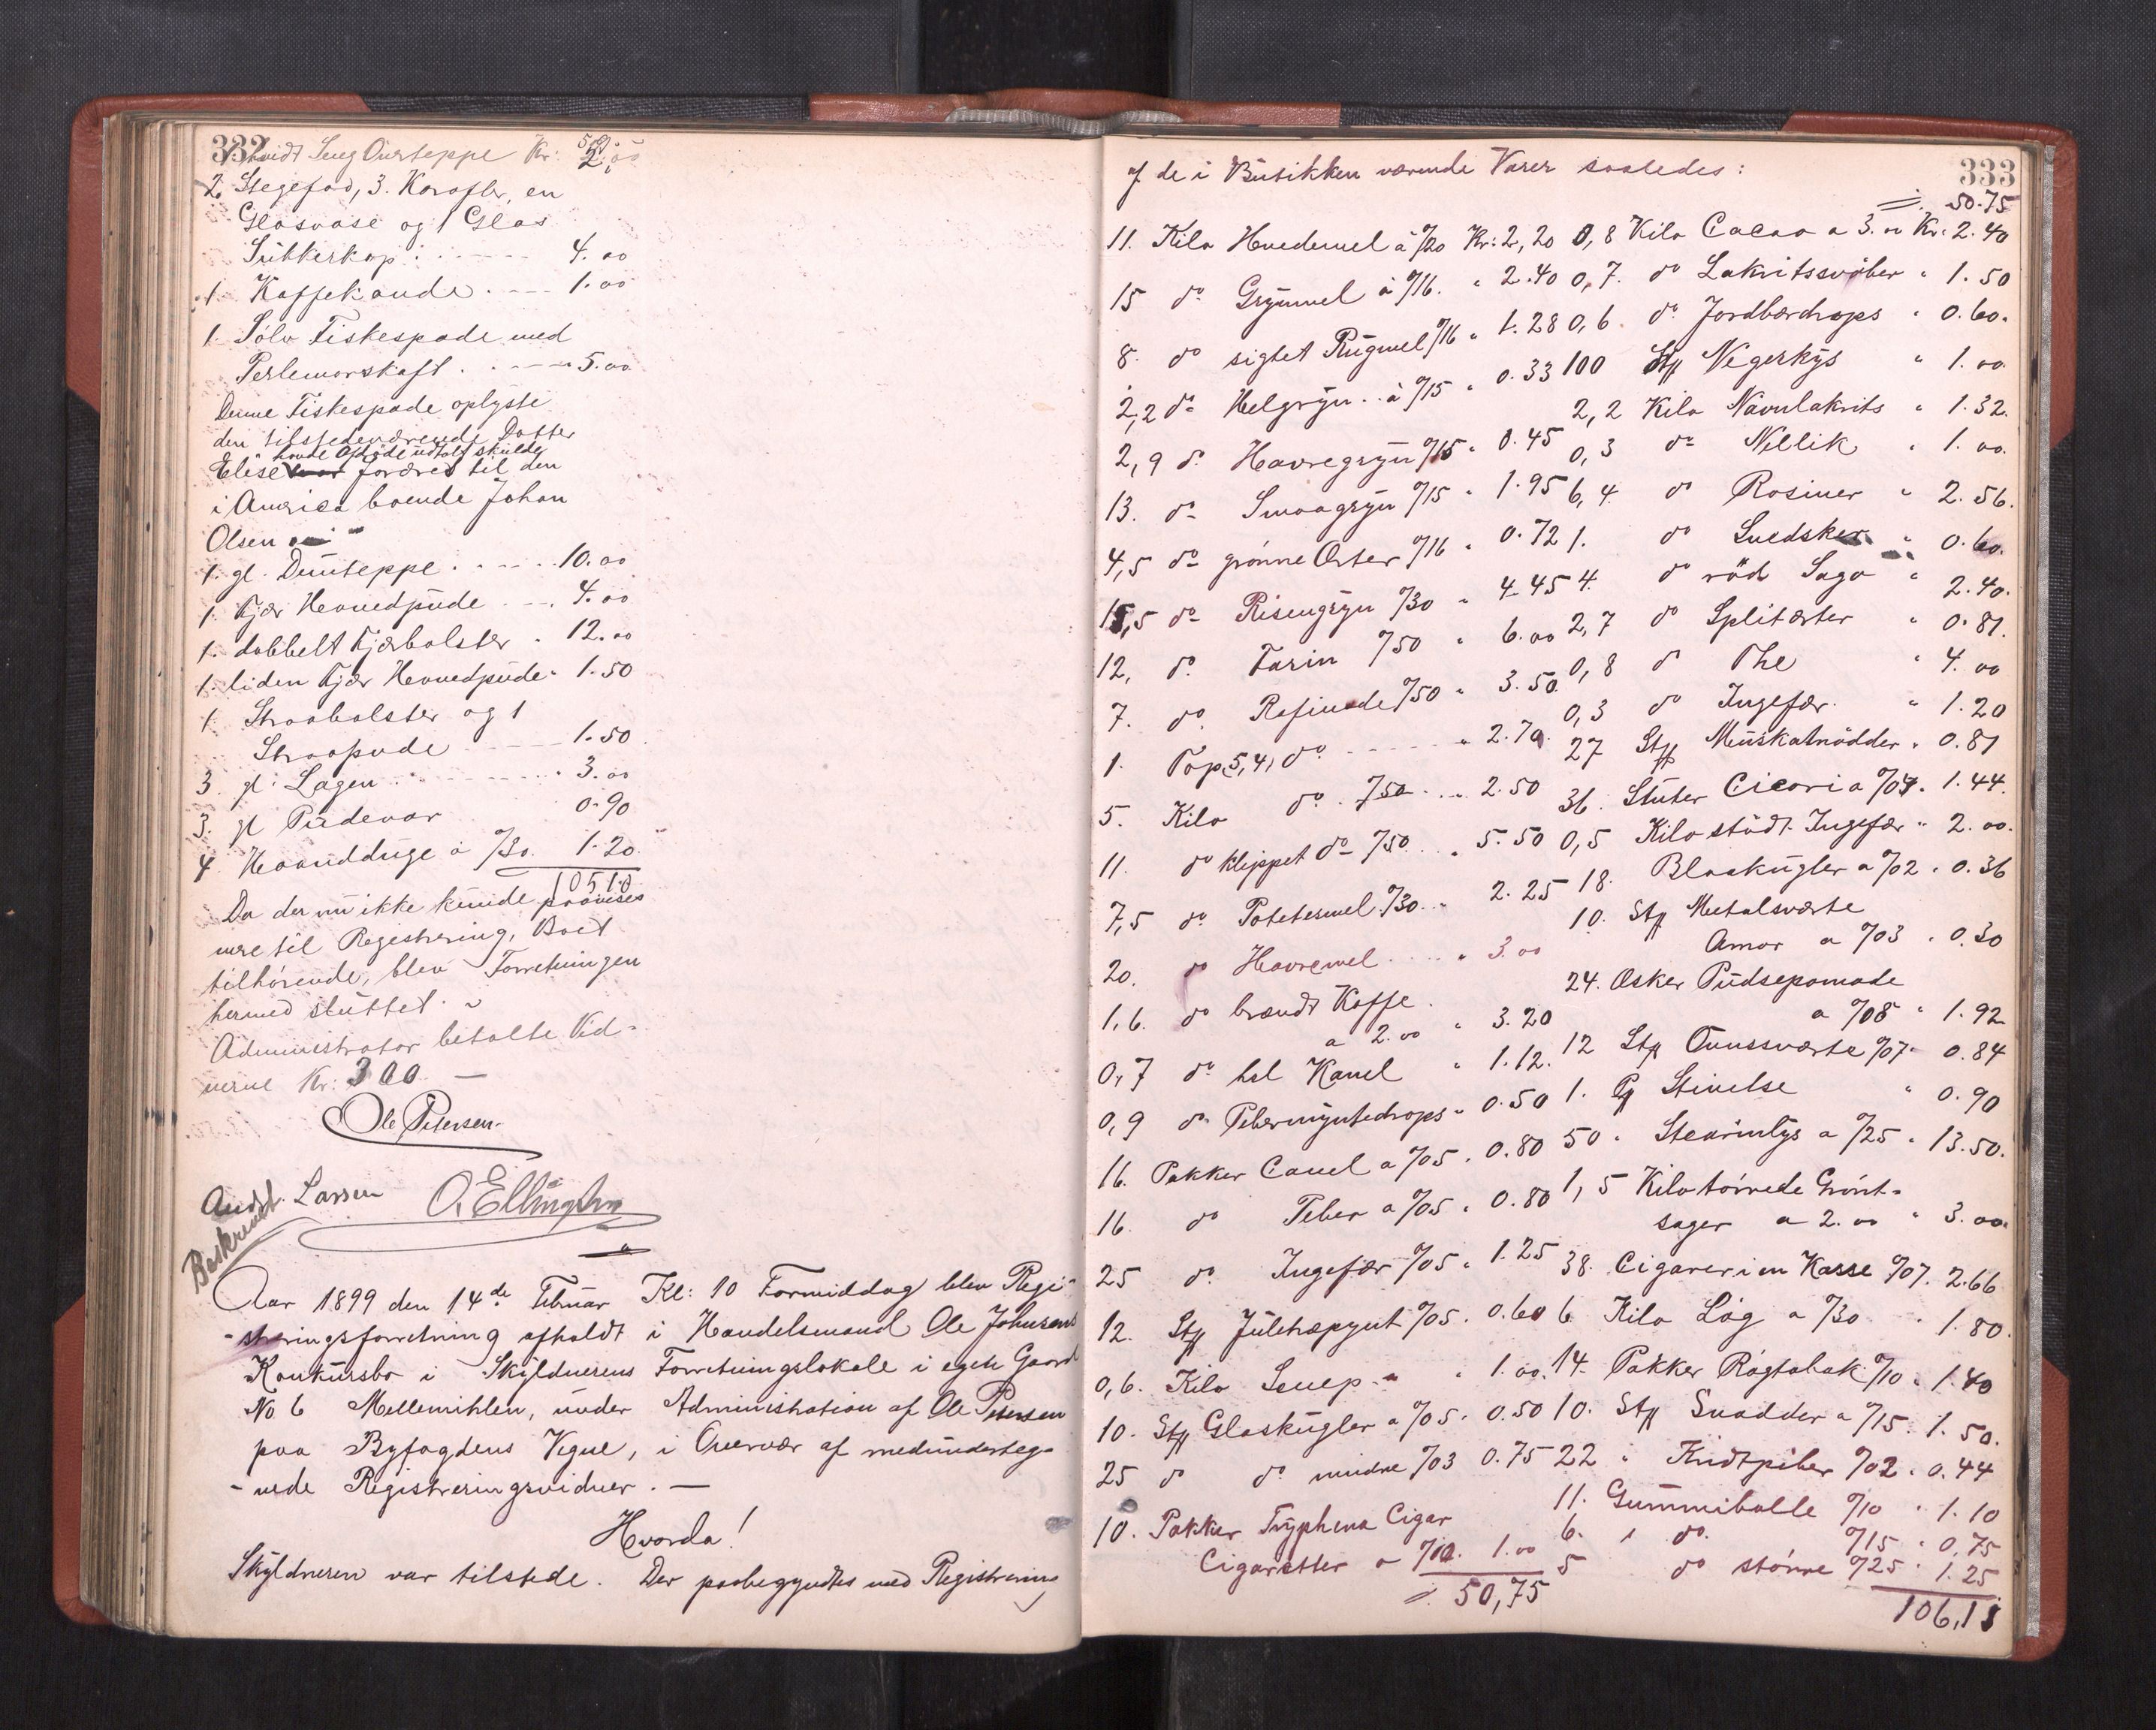 332
1. hvidt Seng Overteppe Kr: 2.00
2 Stegefad, 3. Karafler, en
Glasvase og 1 Glas
Sukkerkop . . . . 4.00
1. Kaffekande . . . 1.00
1. Sölv Fiskespade med
Perlemorskaft . . . " 5.00
Denne Fiskespade oplyste
den tilstedeværende Datter
havde Afdöde udtalt skulde
Elise foræres til den
i America boende Johan
Olsen
1. gl. Duunteppe . . . . 10.00
1. Fjær Hovedpude . . . 4.00
1. dobbelt Fjærbolster " 12.00
1. liden Fjær Hovedpude " 1.50
1. Straabolster og 1
Straapude . . . 1.50
3. gl. Lagen . . . . " 3.00
3. gl Pudevar 0.90
4 Haandduge a %30. 1.20
105 10
Da der nu ikke kunde paavises
mere til Registrering, Boet
tilhörende, blev Forretningen
hermed sluttet. ~
Administrator betalte Vid-
nerne Kr: 3 00 —
Ole Petersen.
Andr. Larsen O. Ellingsen
Beskrevet
Aar 1899 den 14de Februar Kl: 10 Formiddag blev Regi-
-streringsforretning afholdt i Handelsmand Ole Johnsens
Konkursbo i Skyldnerens Forretningslokale i egen Gaard
No 6 Mellemihlen, under Administration af Ole Petersen
paa Byfogdens Vegne, i Overvær af medunderteg-
-nede Registreringsvidner. —
Hvorda!
Skyldneren var tilstede. Der paabegyndtes med Registrering
333
af de i Butikken værende Varer saaledes:
// 50.75
11. Kilo Hvedemel à %20 Kr: 2,20 0,8 Kilo Cacao a 3.00 Kr. 2.40
15 do Grynmel à %16. " 2.40 0,7. do Lakritssvöber " 1.50
8. do sigtet Rugmel %16 " 1.28 0,6. do Jordbærdrops " 0.60.
2,2 do Helgryn . . à %15 " 0.33 100 Stk Negerkys " 1.00.
2,9 do Havregryn %15 " 0.45 2,2 Kilo Navnlakrits " 1.32.
13. do Smaagryn %15 " 1.95 0,3 do Nellik " 1.00.
4,5 do grönne Erter %16 " 0.72 6,4. do Rosiner " 2.56.
15,5 do Risengryn %30 " 4.45 1. do Svedsker " 0.60.
12, do Farin %50 " 6.00 4. do röd Sago " 2.40.
7. do Rafinade %50 " 3.50. 2,7 do Splitærter " 0.81.
1. Top (5,4) do . . . . " 2.70. 0,8 do The " 4.00
5. Kilo do . %50 . . . 2.50 0,3 do Ingefær. " 1.20
11. do klippet do %50 . . " 5.50 27 Stk Muskatnödder " 0.81
7,5 do Potetesmel %30 . . 2.25 36. Stuter Cicori a %04. 1.44.
20. do Havremel . . . . " 3.00 0,5 Kilo stödt Ingefær " 2.00.
1,6. do brændt Kaffe . 18. Blaakugler a %02 . 0.36
a 2.00 " 3.20 10. Stk Metalsværte
0,7 do hel Kanel " 1.12. Amor a %03 . 0.30
0,9 do Pebermyntedrops " 0.50 24. Æsker Pudsepomade
16. Pakker Canel a %05 . 0.80 a %08 " 1.92
16. do Peber a %05 " 0.80 12 Stk Ovnssværte %07 " 0.84
25 do Ingefær %05 " 1.25 1. Pk Stivelse " 0.90
12. Stk Juletrepynt %05 . 0.60 50 " Stearinlys a %25 " 13.50.
0,6. Kilo Senep " " 1.00. 1,5 Kilo törrede Grönt-
10. Stk Glaskugler a %05 . 0.50 sager a 2.00 " 3.00.
25 do do mindre %03 0.75 38. Cigarer i en Kasse %07. 2.66
10. Pakker Tryphena Cigar 6 Kilo Lög a %30 " 1.80.
Cigaretter a %10. 1.00 14. Pakker Rögtobak %10 " 1.40
// 50,75 10. Stk Snadder a %15 . 1.50.
22 " Kridtpiber %02 . 0.44
11. Gummibolle %10 " 1.10
6. " do. %15 " 0,75
5 do större %25 " 1.25
106,15